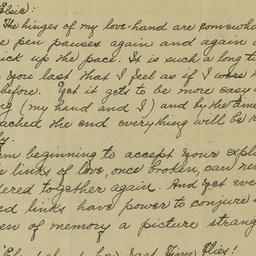 Elsie:
The hinges of my love-hand are somewha
e pen pauses again and again a
ick up the pace. It is such a long ti
you last that I feel as if I were
before. Yet it gets to be more easy
g (my hand and I) and by the time
eached the end everything will be
ly.
am beginning to accept your expl
e links of love, once broken, can re
dered together again. And yet eve
ed links have power to conjure
en of memory a picture strang
how fast Time flies!